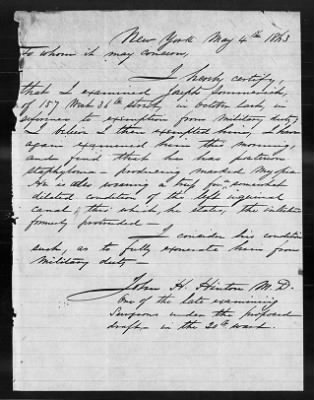 New York May 4th 1863
to whom it may concern,
I hereby certify,
that I examined Joseph
of 157 West 36th Street, in October last, in
reference to exemption from Military duty
I believe I then exempted him; I have
again examined him this morning,
and find that he has posterior
staphyloma – producing marked Myopia
He is also wearing a truss for a somewhat
dilated condition of the left inguinal
canal; this which, he states, the intestine
formerly protruded –
I consider his condition
such, as to fully exonerate him from
Military duty –
John H. Hinton M.D.
One of the late examining
Surgeons under the proposed
draft – in the 20th ward.